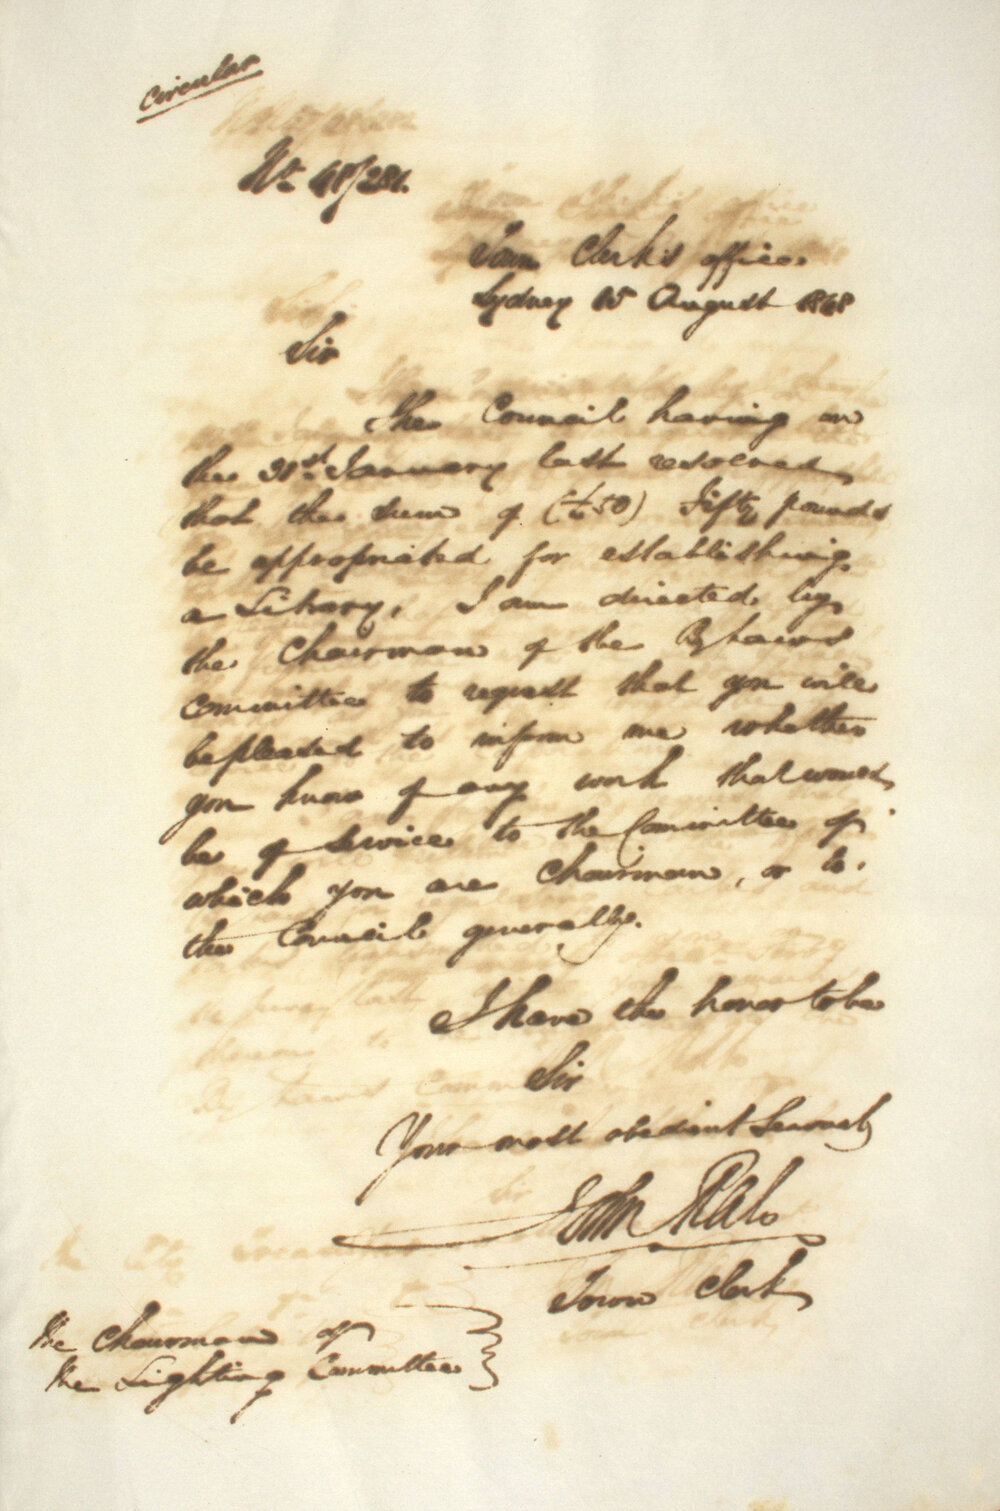 Circular
No. 48/281.
Town Clerk's office
Sydney 15 August 1848
Sir
The Council having on
the 31st January last resolved
that the sum of (£50) Fifty pounds
be appropriated for establishing
a Library, I am directed by
the Chairman of the By Laws
Committee to request that you will
be pleased to inform me whether
you know of any work that would
be of service to the Committee of
which you are Chairman, or to
the Council generally.
I have the honor to be
Sir
Your most obedient Servant
John
Town Clerk
The Chairman of
the Lighting Committee